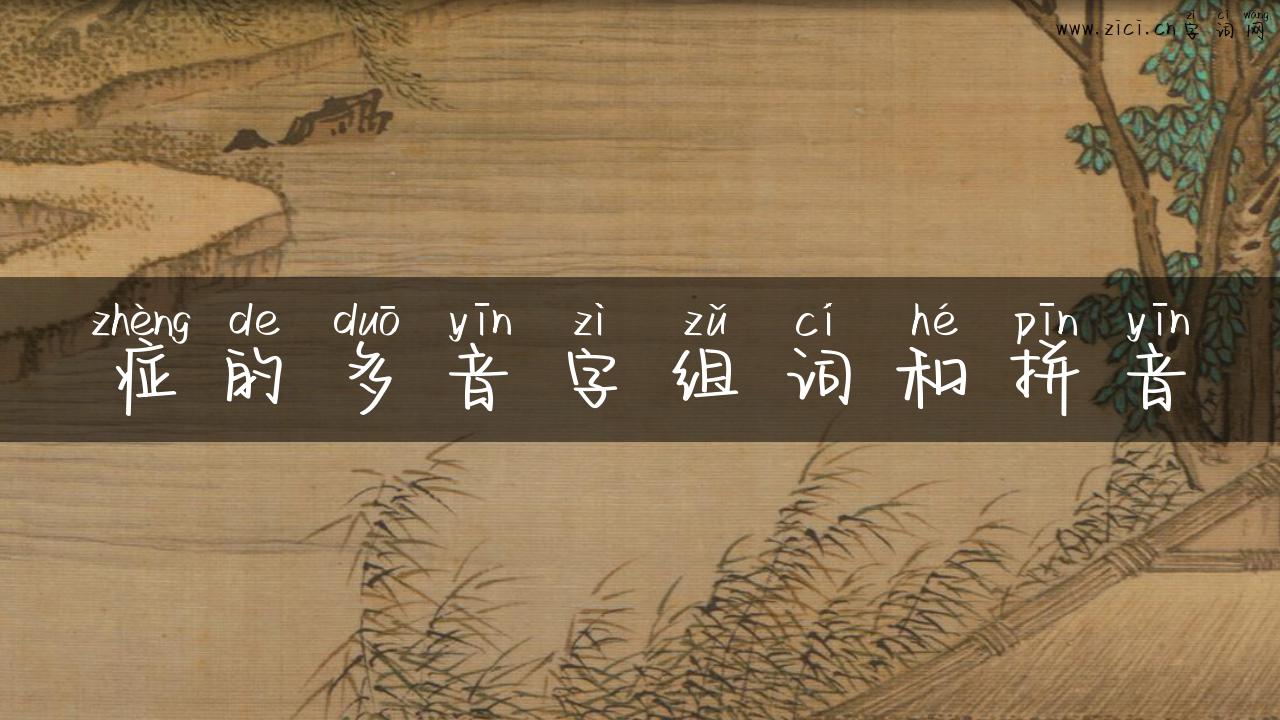 zì cí wǎng
www.zici.cn 字词网
zhèng de duō yīn zì zǔ cí hé pīn yīn
症的多音字组词和拼音